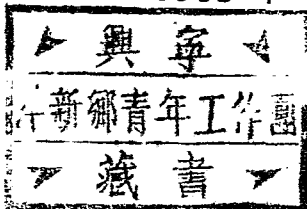 興寧
新鄉青年工作團
藏書